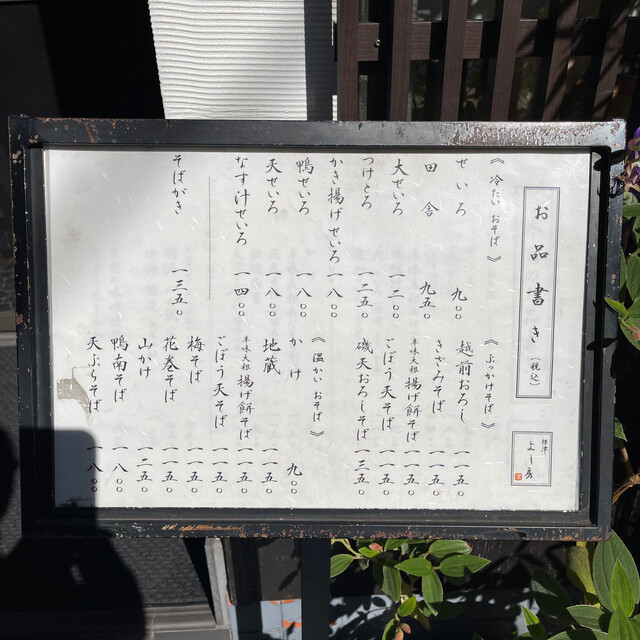 お品書き（税込）
根津 よし房
《冷たいおそば》
せいろ 九〇〇
田舎 九五〇
大せいろ 一二〇〇
つけとろ 一二五〇
かき揚げせいろ 一八〇〇
鴨せいろ 一八〇〇
天せいろ 一八〇〇
なす汁せいろ 一四〇〇
そばがき 一三五〇
《ぶっかけそば》
越前おろし 一一五〇
きざみそば 一一五〇
辛味大根揚げ餅そば 一一五〇
ごぼう天そば 一一五〇
磯天おろしそば 一三五〇
《温かいおそば》
かけ 九〇〇
地蔵 一一五〇
辛味大根揚げ餅そば 一一五〇
ごぼう天そば 一一五〇
梅そば 一一五〇
花巻そば 一一五〇
山かけ 一二五〇
鴨南そば 一八〇〇
天ぷらそば 一八〇〇